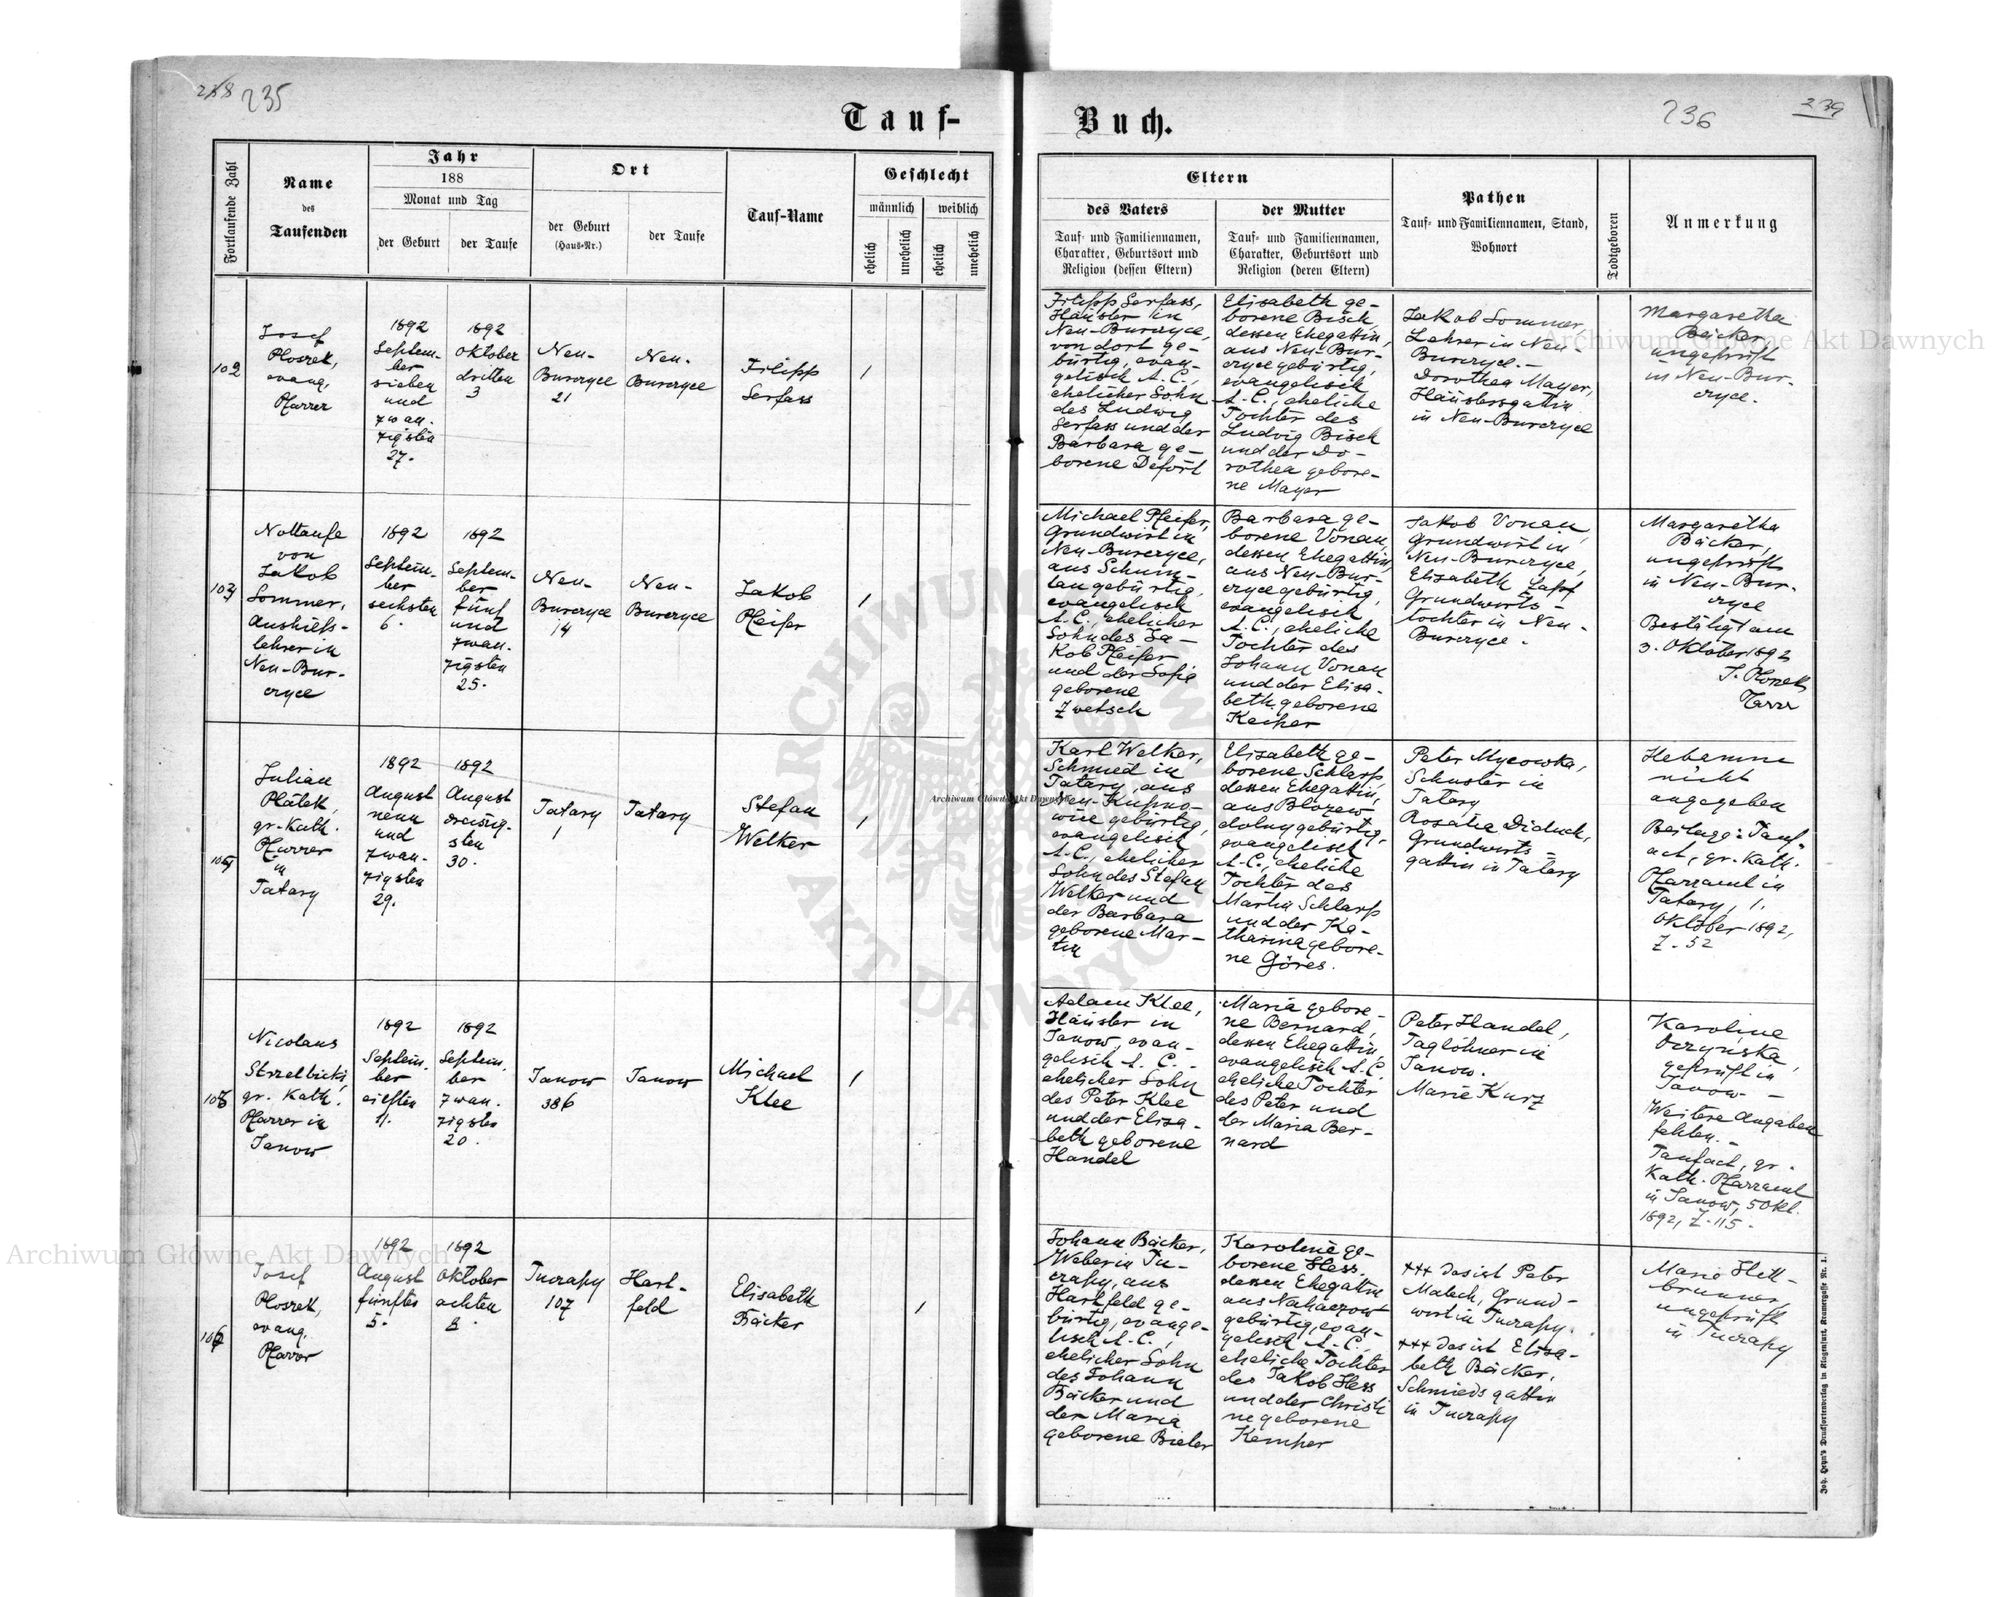 235
Tauf-
Buch.
236
239
Fortlaufende Zahl
Name
des
Taufenden
Jahr
188
Monat und Tag
der Geburt
der Taufe
Ort
der Geburt
(Haus-Nr.)
der Taufe
Tauf-Name
Geschlecht
männlich
weiblich
ehelich
unehelich
ehelich
unehelich
Eltern
des Vaters
Tauf- und Familiennamen,
Charakter, Geburtsort und
Religion (dessen Eltern)
der Mutter
Tauf- und Familiennamen,
Charakter, Geburtsort und
Religion (deren Eltern)
Pathen
Tauf- und Familiennamen, Stand,
Wohnort
Todtgeboren
Anmerkung
102
Josef
Ploszek,
evang.
Pfarrer
1892
Septem-
ber
sieben
und
zwan-
zigsten
27.
1892
Oktober
dritten
3
Neu-
Burczyce
21
Neu-
Burczyce
Filipp
Serfass
/
Filipp Serfass,
Häusler in
Neu-Burczyce,
von dort ge-
bürtig, evan-
gelisch A.C.,
ehelicher Sohn
des Ludwig
Serfass und der
Barbara ge-
borene Defort
Elisabeth ge-
borene Bisch
dessen Ehegattin,
aus Neu-Bur-
czyce gebürtig,
evangelisch
A.C., eheliche
Tochter des
Ludvig Bisch
und der Do-
rothea gebore-
ne Mayer
Jakob Sommer
Lehrer in Neu-
Burczyce.-
Dorothea Mayer,
Häuslersgattin
in Neu-Burczyce
Margaretha
Bäcker,
ungeprüft
in Neu-Bur-
czyce.
103
Nottaufe
von
Jakob
Sommer,
Aushilfs-
lehrer in
Neu-Bur-
czyce
1892
Septem-
ber
sechsten
6.
1892
Septem-
ber
fünf
und
zwan-
zigsten
25.
Neu-
Burczyce
14
Neu-
Burczyce
Jakob
Pfeifer
/
Michael Pfeifer,
Grundwirt in
Neu-Burczyce,
aus Schum-
lau gebürtig,
evangelisch
A.C., ehelicher
Sohn des Ja-
kob Pfeifer
und der Sofie
geborene
Zwetsch
Barbara ge-
borene Vonau,
dessen Ehegattin,
aus Neu-Bur-
czyce gebürtig,
evangelisch
A.C., eheliche
Tochter des
Johann Vonau
und der Elisa-
beth geborene
Keiper
Jakob Vonau,
Grundwirt in
Neu-Burczyce,
Elisabeth Zapf
Grundwirts-
tochter in Neu-
Burczyce.
Margaretha
Bäcker,
ungeprüft
in Neu-Bur-
czyce
Bestätigt am
3. Oktober 1892
J. Ploszek
Pfarrer
104
Julian
Plątek,
gr.-kath.
Pfarrer
in
Tatary
1892
August
neun
und
zwan-
zigsten
29.
1892
August
dreissig-
sten
30.
Tatary
1
Tatary
Stefan
Welker
/
Karl Welker,
Schmied in
Tatary, aus
Neu-Kupno-
wice gebürtig,
evangelisch
A.C., ehelicher
Sohn des Stefan
Welker und
der Barbara
geborene Mar-
tin
Elisabeth ge-
borene Schlarp
dessen Ehegattin,
aus Błozew
dolny gebürtig,
evangelisch
A.C., eheliche
Tochter des
Martin Schlarp
und der Ka-
tharina gebore-
ne Göres.
Peter Mycowska,
Schuster in
Tatary
Rosalia Diduch,
Grundwirts-
gattin in Tatary
Hebamme
nicht
angegeben
Beilage: Tauf-
act, gr.-kath.
Pfarramt in
Tatary, 1.
Oktober 1892,
Z. 52
105
Nicolaus
Strzelbicki,
gr. kath.
Pfarrer in
Janow
1892
Septem-
ber
eilften
11.
1892
Septem-
ber
zwan-
zigsten
20.
Janow
386
Janow
Michael
Klee
/
Adam Klee,
Häusler in
Janow, evan-
gelisch A.C.-
ehelicher Sohn
des Peter Klee
und der Elisa-
beth geborene
Handel
Maria gebore-
ne Bernard,
dessen Ehegattin,
evangelisch A.C.,
eheliche Tochter
des Peter und
der Maria Ber-
nard
Peter Handel,
Taglöhner in
Janow.
Marie Kurz
Karoline
geprüft in
Janow.-
Weitere Angaben
fehlen.-
Taufact, gr.
kath. Pfarramt
in Janow, 5 Okt.
1892, Z. 115.
106
Josef
Ploszek,
evang.
Pfarrer
1892
August
fünften
5.
1892
Oktober
achten
8.
Tuczapy
107
Hart-
feld
Elisabeth
Bäcker
/
Johann Bäcker,
Weber in Tu-
czapy, aus
Hartfeld ge-
bürtig, evange-
lisch A.C.,
ehelicher Sohn
des Johann
Bäcker und
der Maria
geborene Bieler
Karoline ge-
borene Hess,
dessen Ehegattin
aus Nahaczow
gebürtig, evan-
gelisch A.C.,
eheliche Tochter
des Jakob Hess
und der Christi
ne geborene
Kemper
+++ das ist Peter
Malech, Grund-
wirt in Tuczapy.
+++ das ist Elisa-
beth Bäcker,
Schmieds gattin
in Tuczapy
Marie Hell-
brunner,
ungeprüft
in Tuczapy
Joh. Heyn's Drucksortenverlag in Klagenfurt, Kramergasse Nr. 1.
Archiwum Główne Akt Dawnych
Archiwum Główne Akt Dawnych
Archiwum Główne Akt Dawnych
ARCHIWUM GŁÓWNE
AKT DAWNYCH